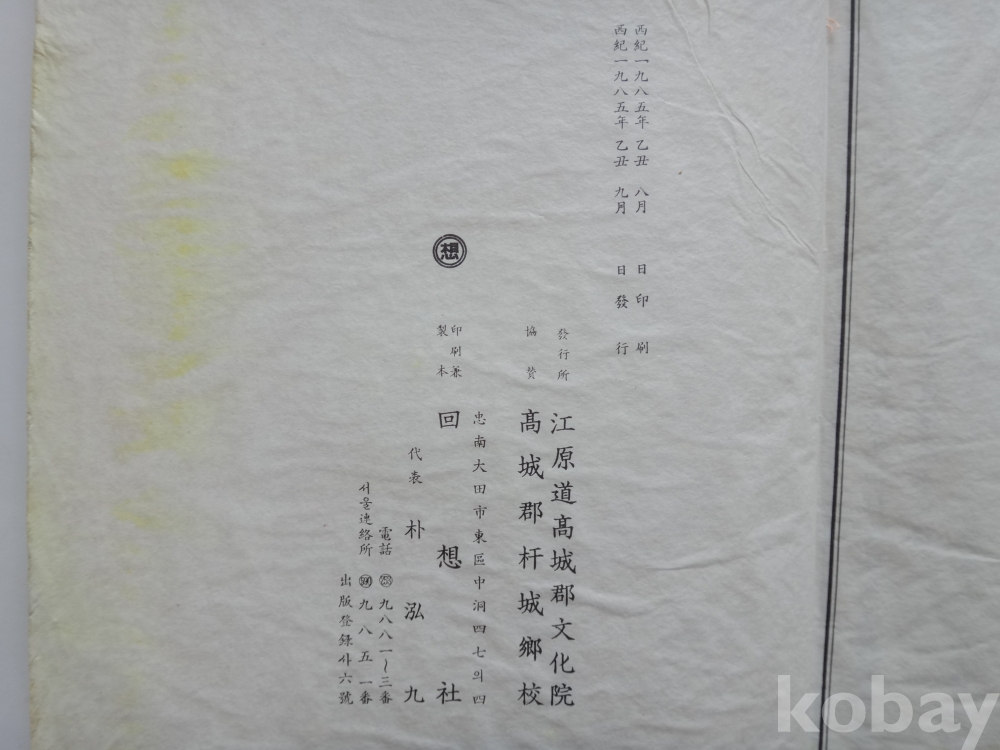 西紀一九八五年 乙丑 八月 日 印 刷
西紀一九八五年 乙丑 九月 日 發 行
發行所 江原道高城郡文化院
協贊 高城郡杆城鄉校
忠南大田市東區中洞四七의四
印刷兼
製本 回想社
想
代表 朴泓九
電話 九八八一～三番
서울連絡所 九八五一番
出版登録사六號
kobay